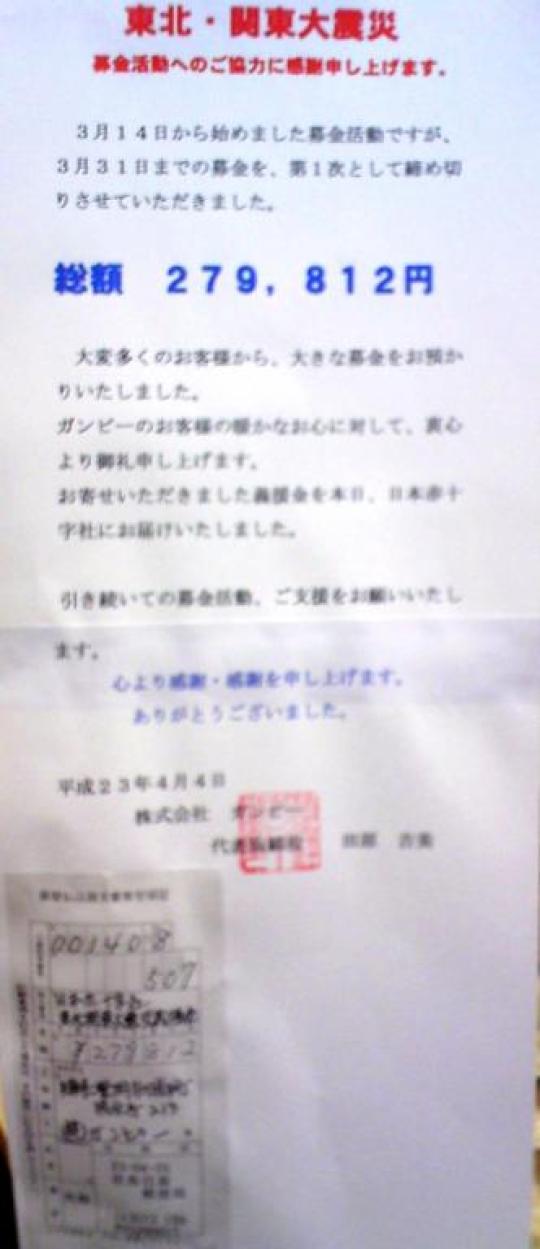 東北・関東大震災
募金活動へのご協力に感謝申し上げます。
3月14日から始めました募金活動ですが、
3月31日までの募金を、第1次として締め切
りさせていただきました。
総額　279，812円
大変多くのお客様から、大きな募金をお預か
りいたしました。
ガンビーのお客様の暖かなお心に対して、真心
より御礼申し上げます。
お寄せいただきました義援金を本日、日本赤十
字社にお届けいたしました。
引き続いての募金活動、ご支援をお願いいたし
ます。
心より感謝・感謝を申し上げます。
ありがとうございました。
平成23年4月4日
株式会社　ガンビー
代表取締役
001408
507
¥279812